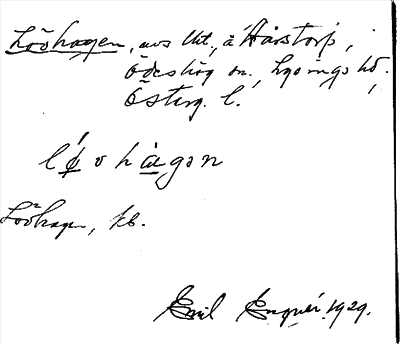 Lövhagen, avs. Utt. å Hårstorp,
Ödeshög sn. Lysings hd.
Österg. l.
l ǿ v h à g ə n
Lövhagen, kb.
Emil Enqvist. 1929.